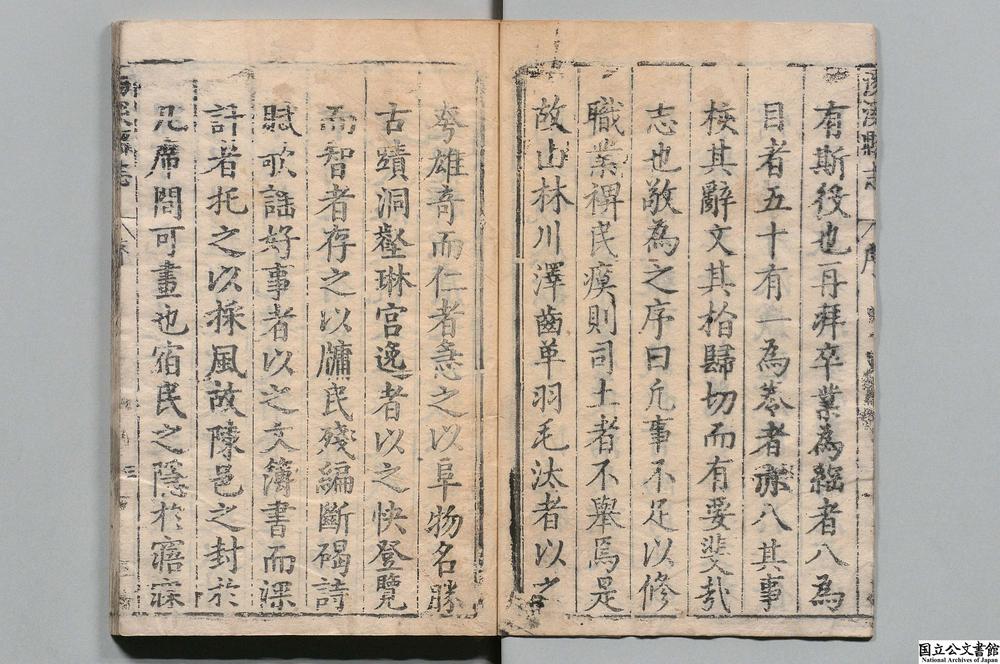 有斯役也再拜卒業為綱者八為
目者五十有一為卷者亦八其事
核其辭文其指歸切而有要斐哉
志也敬為之序曰凡事不足以修
職業裨民瘼則司土者不舉焉是
故山林川澤齒革羽毛汰者以之
夸雄奇而仁者急之以阜物名勝
古蹟洞壑琳宮逸者以之快登覽
而智者存之以牖民殘編斷碣詩
賦歌謡好事者以之文簿書而深
計者托之以採風故陳邑之封於
几席間可畫也宿民之隱於寤寐
縣志
序
国立公文書館
National Archives of Japan